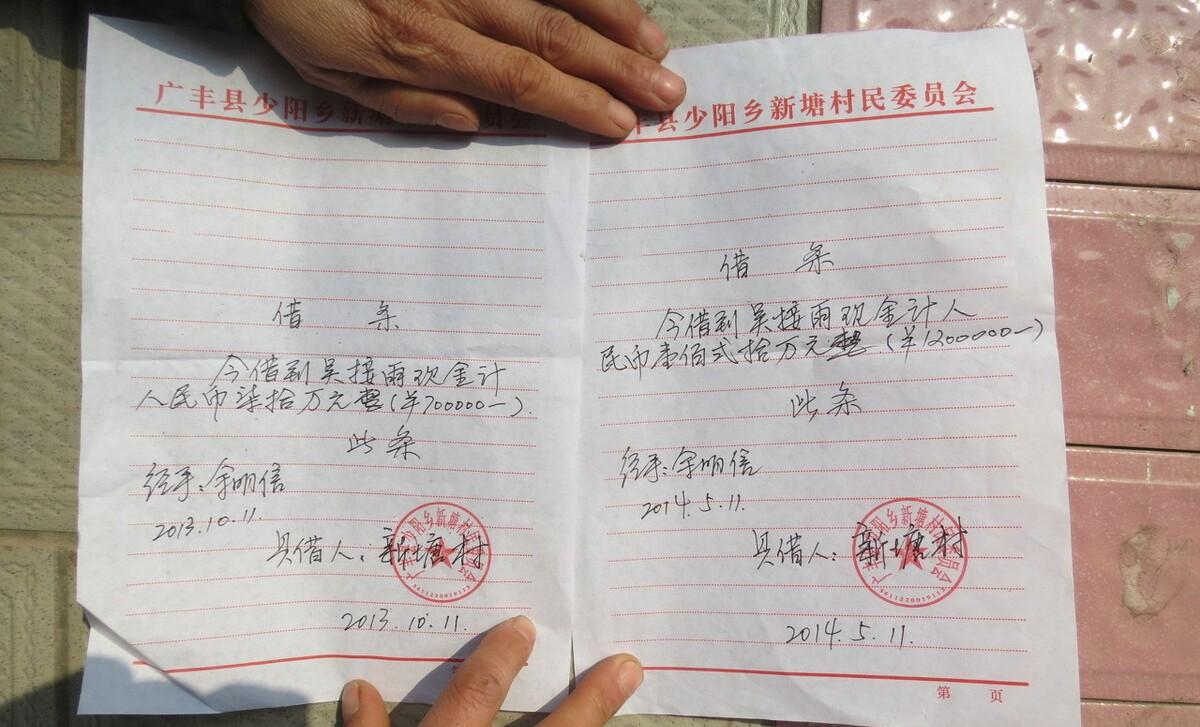 广丰县少阳乡新塘村民委员会
借 条
今借到吴接雨现金计
人民币柒拾万元整(¥700000-).
此条
经手:余明信
2013.10.11.
具借人:新塘村
2013.10.11.
丰县少阳乡新塘村民委员会
借 条
今借到吴接雨现金计人
民币壹佰弍拾万元整.(¥1200000-)
此条
经手:余明信
2014.5.11.
具借人:新塘村
2014.5.11.
第 页